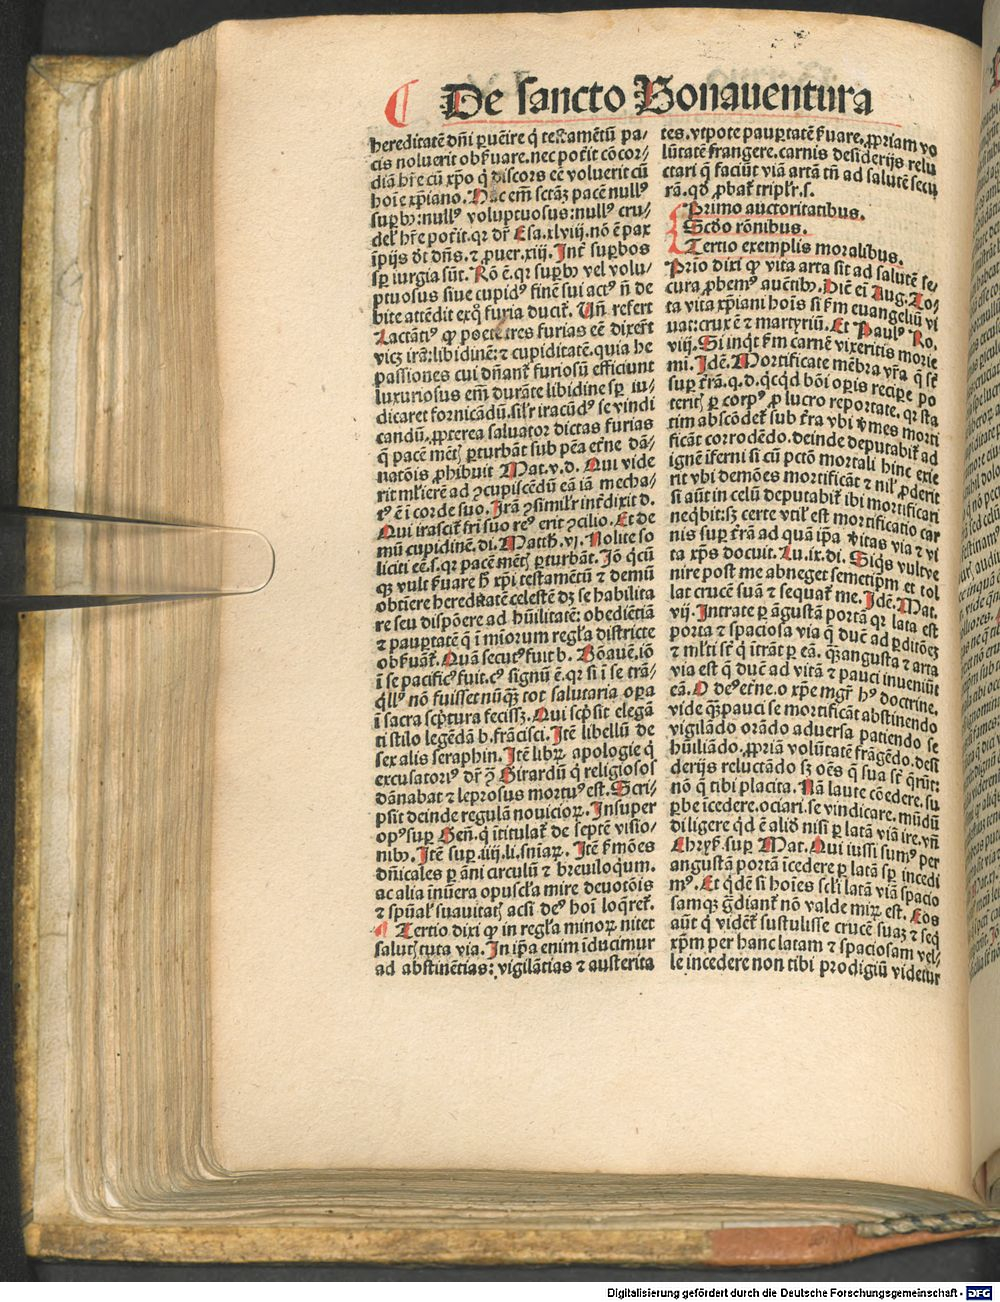 ¶ De sancto Bonauentura
hereditatē dn̄i ꝑuēire q̇ testamētū pa-
cis noluerit obẜuare. nec poẗit cōcor-
diā hr̄e cū xp̄o q̇ discors eē voluerit cū
hoīe xp̄iano. Hāc em̄ sctāꝫ pacē null⁹
suꝑbꝰ: null⁹ voluptuosus: null⁹ cru-
del̕ hr̄e poẗit. qꝛ dr̄ Esa. xlviij. nō ē pax
īpijs dt̄ dn̄s. ⁊ ꝓuer. xiij. Int̄ suꝑbos
sꝑ iurgia sūt. Rō ē. qꝛ suꝑbꝰ vel volu-
ptuosus siue cupid⁹ finē sui act⁹ nō de
bite attēdit ex q̊ furia ducit̄. Un̄ refert
Lactāti⁹ ꝙ poete tres furias eē dixer̄t
vicꝫ irā: libidinē: ⁊ cupiditatē. quia he
passiones cui dn̄ant̄ furiosū efficiunt
luxuriosus em̄ durāte libidine sꝑ iu-
dicaret fornicādū. sil̕r iracūd⁹ se vindi
candū. ꝓpterea saluator dictas furias
q̄ pacē mēt̕ ꝑturbāt sub pēa et̄ne dā-
natōis ꝓhibuit Mat. v. d. Qui vide
rit ml̕ierē ad ꝯcupiscēdū eā iā mecha-
t⁹ ē ī corde suo. Irā ꝯsimil̕r int̄dixit d.
Qui irascit̄ fr̄i suo re⁹ erit ꝯcilio. Et de
mū cupidinē. di. Matth. vj. Nolite so
liciti eē. s. qꝛ pacē mēt̕ ꝑturbāt. Jō q̇cū
qꝫ vult ẜuare h̄ xp̄i testamētū ⁊ demū
obtīere hereditatē celestē dꝫ se habilita
re seu dispōere ad hūilitatē: obediētiā
⁊ pauꝑtatē q̄ ī miorum regl̕a districte
obẜuāt̄. Quā secut⁹ fuit b. Bōauē. iō
ī se pacific⁹ fuit. c⁹ signū ē. qꝛ si ī se trā-
q̇ll⁹ nō fuisset nūqꝫ tot salutaria oꝑa
ī sacra scp̄tura fecissꝫ. Qui scp̄sit elegā
ti stilo legēdā b. frācisci. Itē libellū de
sex alis seraphin. Itē libꝝ apologie q̇
excusatori⁹ dr̄ ꝯ̄ Girardū q̇ religiosos
dānabat ⁊ leprosus mortu⁹ est. Scri-
psit deinde regulā nouicioꝝ. Insuper
op⁹ suꝑ Gen̄. q̄ ītitulat̄ de septē visio-
nibꝰ. Itē suꝑ. iiij. li. sn̄iaꝝ. Itē ẜmōes
dn̄icales ꝑ āni circulū ⁊ breuiloqum.
ac alia īnūera opuscl̕a mire deuotōis
⁊ spūal̕ suauitat̕ acsi de⁹ hoī loq̄ret̄.
¶ Tertio dixi ꝙ in regl̕a minoꝝ nitet
salut̕ tuta via. In ip̄a enim īducimur
ad abstinētias: vigilātias ⁊ austerita
tes. vtpote pauꝑtatē ẜuare. ꝓpriam vo
lūtatē frangere. carnis desiderijs relu
ctari q̄ faciūt viā artā tn̄ ad salutē secu
rā. qd̕ ꝓbat̄ tripl̕r. s.
Primo auctoritatibus.
Scd̕o rōnibus.
Tertio exemplis moralibus.
Prio dixi ꝙ vita arta sit ad salutē se-
cura ꝓbem⁹ auctibꝰ. Dic̄ ei Aug. To-
ta vita xp̄iani hoīs si ẜm euangeliū vi
uat: crux ē ⁊ martyriū. Et Paul⁹ Ro.
viij. Si inq̇t ẜm carnē vixeritis morie
mi. Idē. Mortificate mēbra vr̄a q̄ st̄
suꝑ ẗrā. q. d. q̇cq̇d bōi oꝑis recipe po
terit̕ ꝑ corp⁹ ꝓ lucro reportate. qꝛ sta
tim abscōdet̄ sub ẗra vbi v̄mes morti
ficāt corrodēdo. deinde deputabit̄ ad
ignē īferni si cū pctō mortali hinc exie
rit vbi demōes mortificāt ⁊ nil̕ ꝓderit
si aūt in celū deputabit̄ ibi mortificari
neq̇bit: sꝫ certe vtil̕ est mortificatio car
nis suꝑ ẗrā ad quā ip̄a v̄itas via ⁊ vi
ta xp̄s docuit. Lu. ix. di. Siq̇s vult ve
nire post me abneget semetip̄m et tol
lat crucē suā ⁊ sequat̄ me. Idē. Mat.
vij. Intrate ꝑ āgustā portā qꝛ lata est
porta ⁊ spaciosa via q̄ ducē ad ꝑditōeꝫ
⁊ ml̕ti st̄ q̇ ītrāt ꝑ eā. qꝫ angusta ⁊ arta
via est q̄ ducē ad vitā ⁊ pauci inueniūt
eā. O de⁹ et̄ne. o xp̄e mgr̄ h⁹ doctrine,
vide qꝫ pauci se mortificāt abstinendo
vigilādo orādo aduersa patiendo se
hūiliādo. ꝓpriā volūtatē frāgēdo. desi
derijs reluctādo sꝫ oēs q̄ sua st̄ q̄rūt:
nō q̄ tibi placita. Nā laute cōedere. su
ꝑbe īcedere. ociari. se vindicare. mūdū
diligere q̇d ē aliud nisi ꝑ latā viā ire. vn̄
Chryẜ. suꝑ Mat. Qui iussi sum⁹ per
angustā portā īcedere ꝑ latā sꝑ incedi
m⁹. Et q̇dē si hoīes scl̕i latā viā spacio
samqꝫ ḡdiant̄ nō valde miꝝ est. Eos
aūt q̇ vidēt̄ sustulisse crucē suaꝫ ⁊ seq̇
xp̄m per hanc latam ⁊ spaciosam vel-
le incedere non tibi prodigiū videtur
Digitalisierung gefördert durch die Deutsche Forschungsgemeinschaft - DFG